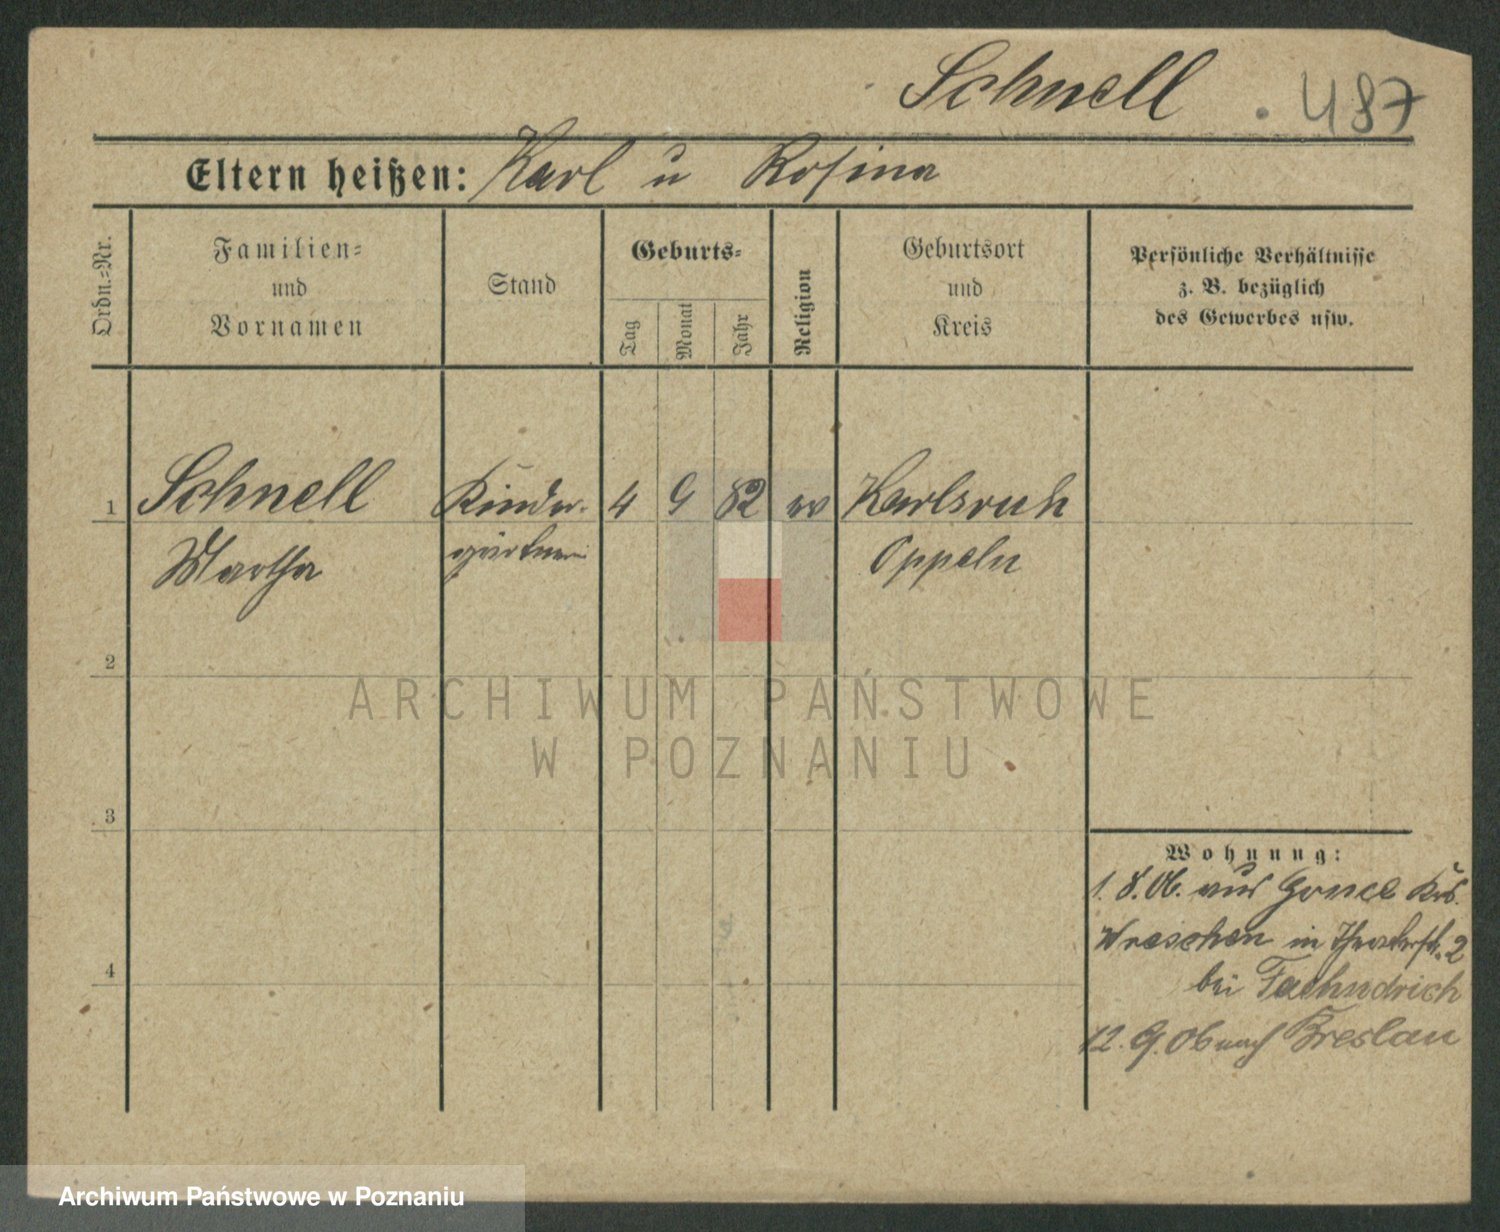 Schnell . 487
Eltern heißen: Karl u Rosina
Ordn.=Nr.
Familien=
und
Vornamen
Stand
Geburts=
Tag
Monat
Jahr
Religion
Geburtsort
und
Kreis
Persönliche Verhältnisse
z. B. bezüglich
des Gewerbes usw.
1 Schnell Kinder- 4 9 82 ev Karlsruh
Martha gärtnerin Oppeln
2
3
4
Wohnung:
1. 8. 06. aus Krs.
Wreschen in Theaterstr. 2
bei Faehndrich
12. 9. 06 nach Breslau
ARCHIWUM PAŃSTWOWE
W POZNANIU
Archiwum Państwowe w Poznaniu